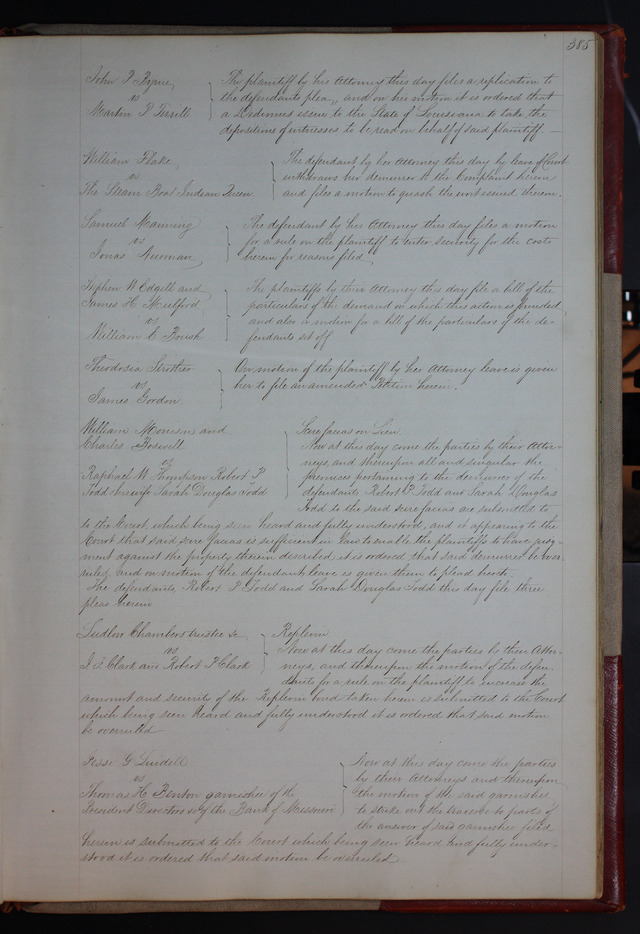 385
John P Byrne
vs
Martin P Tirrell
The plaintiff by his Attorney this day files a replication to
the defendants plea, and on his motion it is ordered that
a Dedimus issue to the State of Louisiana to take the
depositions of witnesses to be read on behalf of said plaintiff
William Flake
vs
The Steam Boat Indian Queen
The defendant by her Attorney this day by leave of Court
withdraws her demurrer to the Complaint herein
and files a motion to quash the writ issued herein.
Samuel Manning
vs
Jonas Newman
The defendant by his Attorney this day files a motion
for a rule on the plaintiff to enter security for the costs
herein for reasons filed
Stephen W Edgell and
James H Mulford
vs
William E Boush
The plaintiffs by their Attorney this day file a bill of the
particulars of the demand on which this action is founded
and also a motion for a bill of the particulars of the de-
fendants set off
Theodosia Strother
vs
James Gordon
On motion of the plaintiff by her Attorney leave is given
her to file an amended Petition herein.
William Morrison and
Charles Boswell
vs
Raphael W Thompson Robert P
Todd his wife Sarah Douglas Todd
Scire facias on Lien
Now at this day come the parties by their Attor-
neys, and thereupon all and singular the
premises pertaining to the demurrer of the
defendants Robert P Todd and Sarah Douglas
Todd to the said scire facias are submitted to
to the Court, which being seen heard and fully understood, and it appearing to the
Court that said scire facias is sufficient in law to enable the plaintiffs to have judg-
ment against the property therein described it is ordered that said demurrer be over
ruled, and on motion of the defendants leave is given them to plead
The defendants, Robert P Todd and Sarah Douglas Todd this day file three
pleas herein
Ludlow Chambers trustee &c
vs
J. P. Clark and Robert P Clark
Replevin
Now at this day come the parties by their Attor-
neys, and thereupon the motion of the defen
dants for a rule on the plaintiff to increase the
amount and security of the Replevin bond taken herein is submitted to the Court
which being seen heard and fully understood it is ordered that said motion
be overruled
Jesse G Lindell
vs
Thomas H Benton garnishee of the
President Directors &c of the Bank of Missouri
Now at this day come the parties
by their Attorneys and thereupon
the motion of the said garnishee
to strike out the traverse to parts of
the answer of said garnishee filed
herein is submitted to the Court which being seen heard and fully under-
stood it is ordered that said motion be overruled